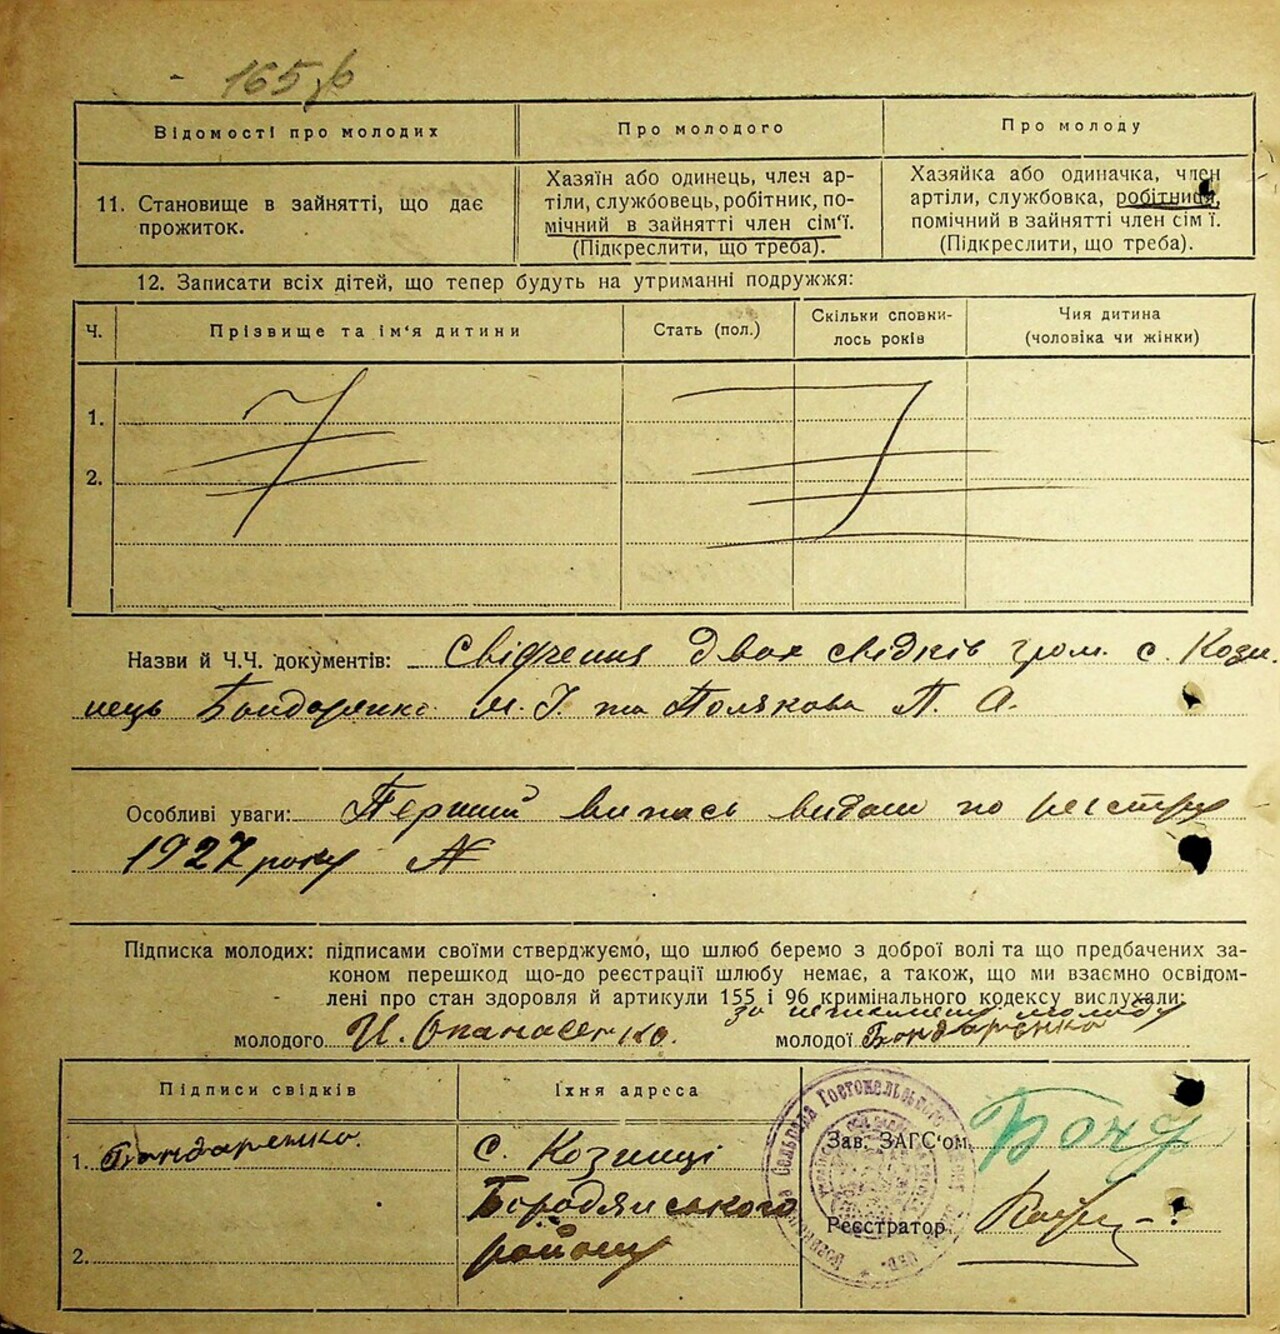 165
Відомості про молодих
Про молодого
Про молоду
11. Становище в зайнятті, що дає
прожиток.
Хазяїн або одинець, член ар-
тіли, службовець, робітник, по-
мічний в зайнятті член сім'ї.
(Підкреслити, що треба).
Хазяйка або одиначка, член
артіли, службовка, робітниця,
помічний в зайнятті член сім ї.
(Підкреслити, що треба).
12. Записати всіх дітей, що тепер будуть на утриманні подружжя:
Ч.
Прізвище та ім'я дитини
Стать (пол.)
Скільки сповни-
лось років
Чия дитина
(чоловіка чи жінки)
1.
2.
Назви й Ч.Ч. документів: Свідчення двох свідків гром. с. Кози-
нець Бондаренко М. І. та Полякова П. А.
Особливі уваги: Перший випись видан по реєстру
1927 року №
Підписка молодих: підписами своїми стверджуємо, що шлюб беремо з доброї волі та що предбачених за-
коном перешкод що-до реєстрації шлюбу немає, а також, що ми взаємно освідом-
лені про стан здоровля й артикули 155 і 96 кримінального кодексу вислухали:
за неписьмену молоду
молодого И. Опанасенко. молодої Бондаренко
Підписи свідків
Їхня адреса
1. Бондаренко.
2.
с. Козинці
Бородянського
району
Зав. ЗАГС'ом
Реєстратор
Сельрада Гостомельського